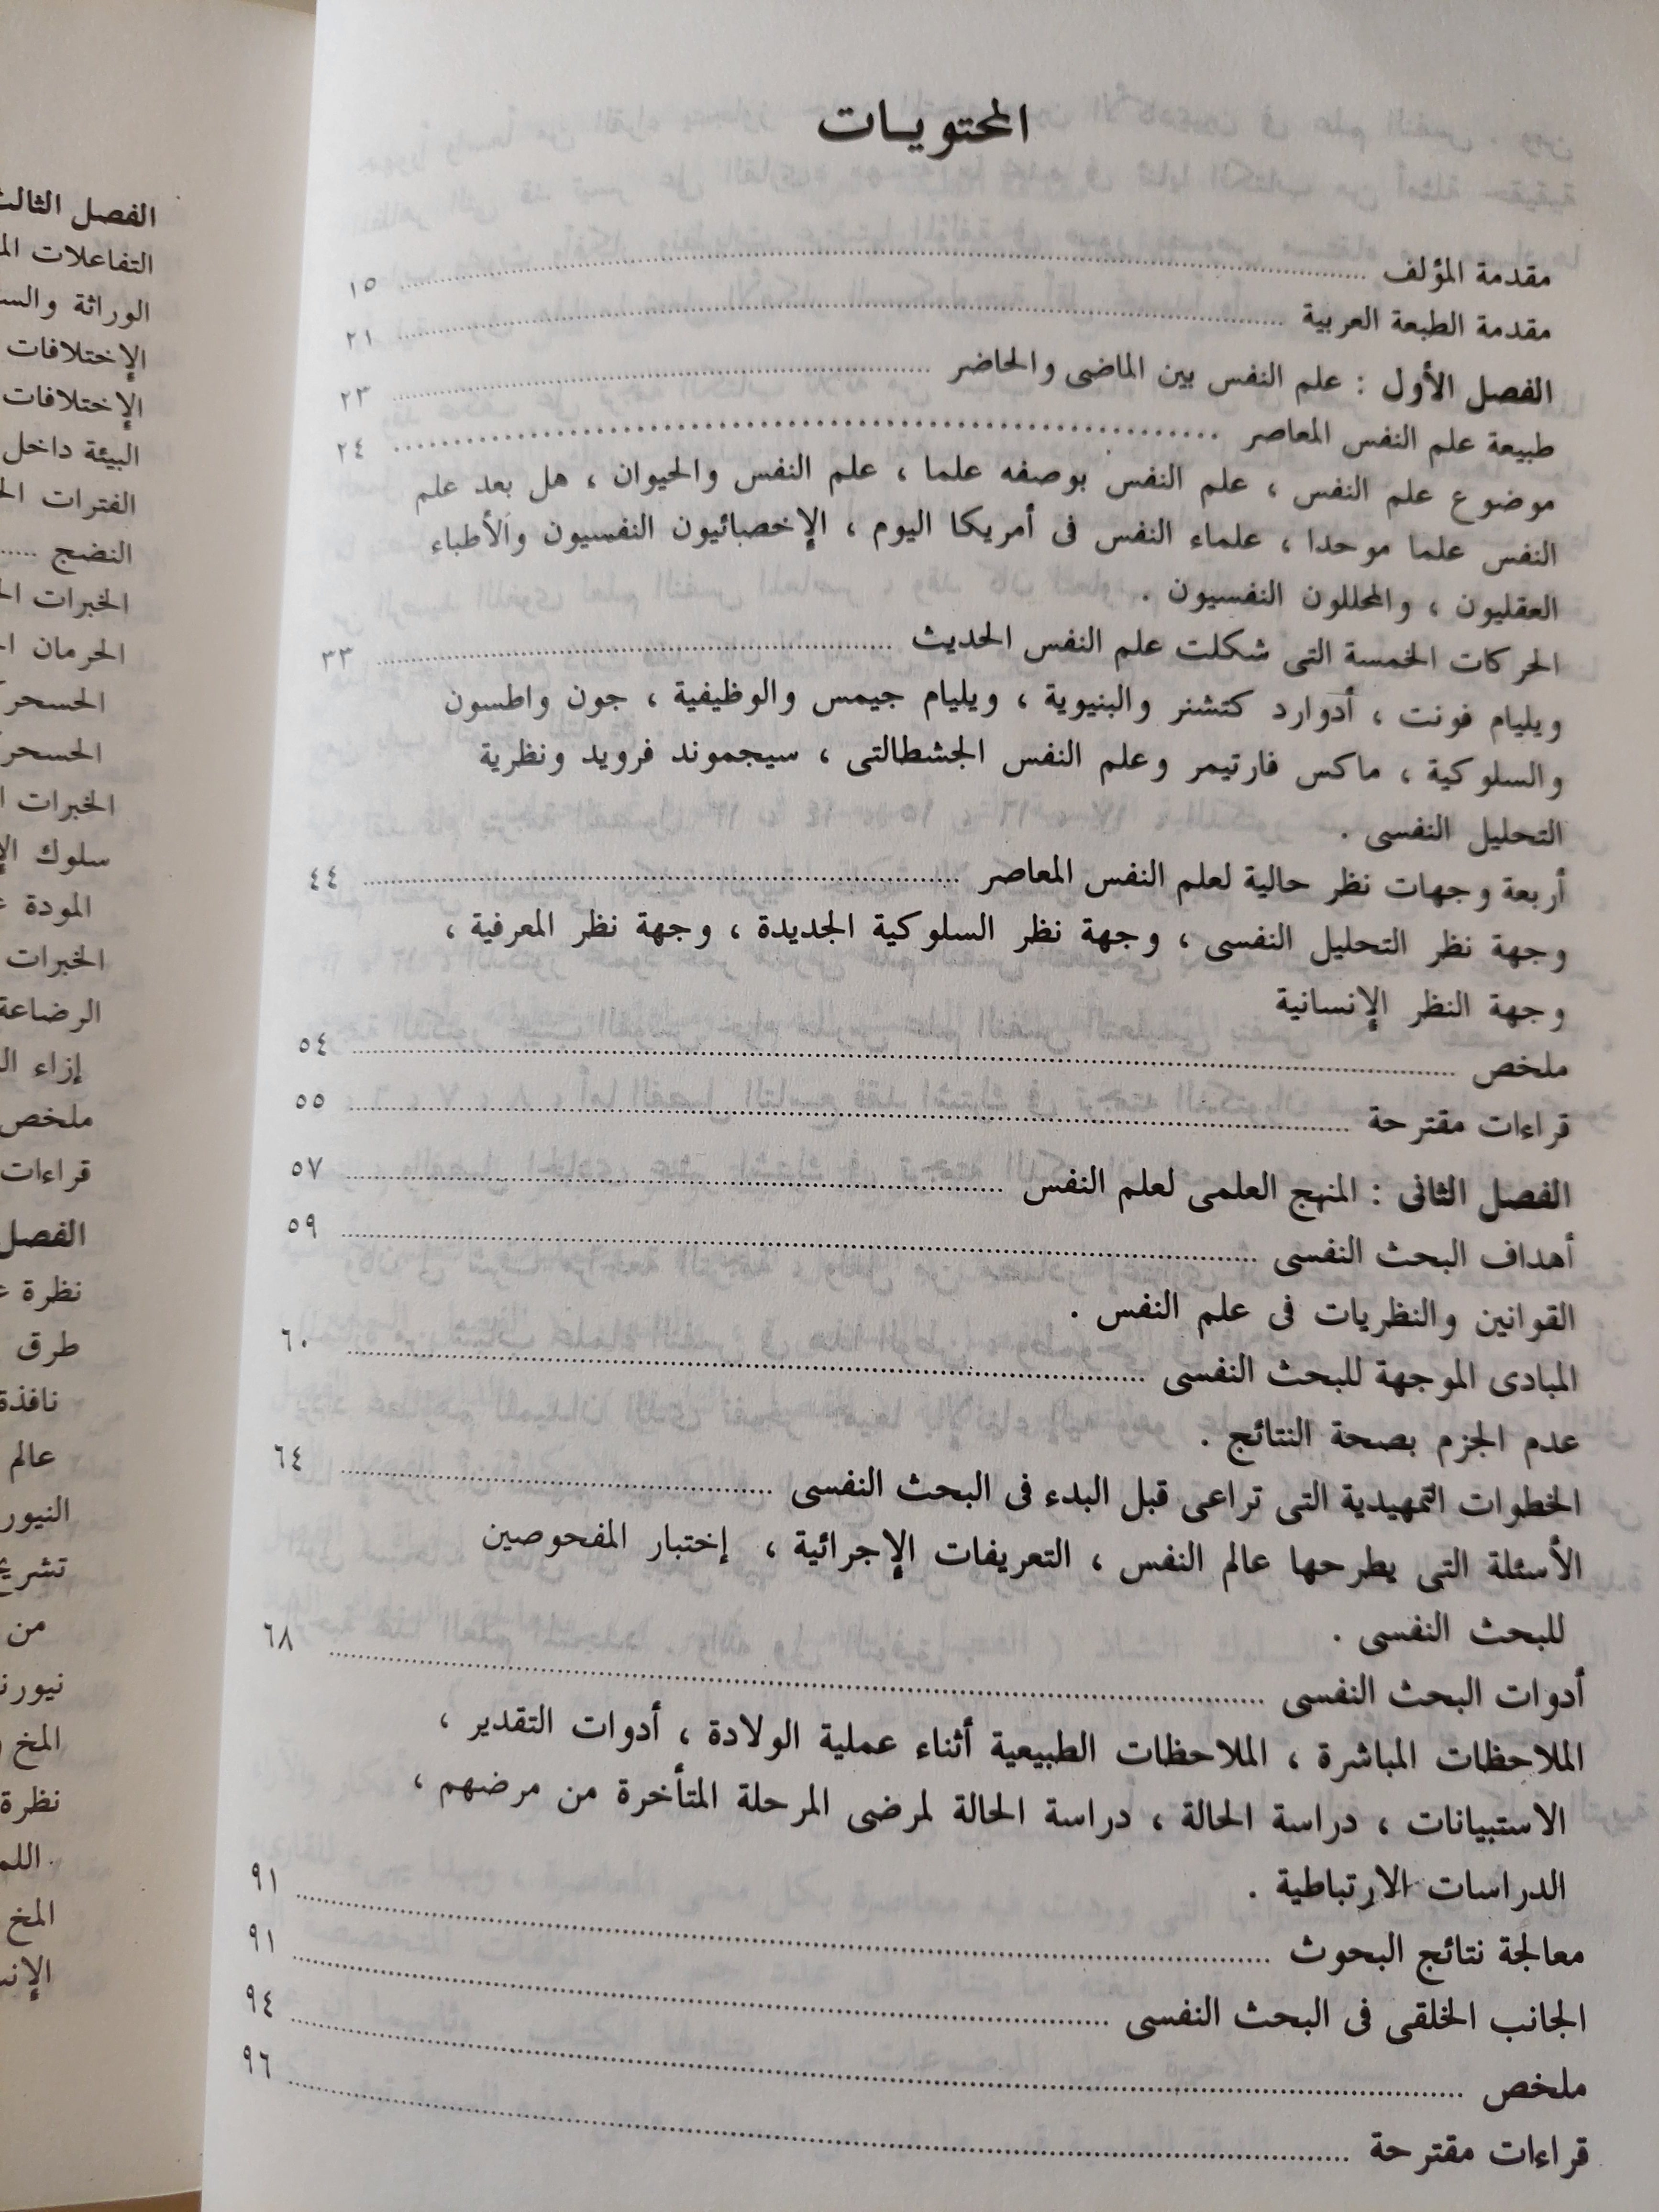 المحتويات
مقدمة المؤلف ........ ١٥
مقدمة الطبعة العربية ........ ٢١
الفصل الأول : علم النفس بين الماضى والحاضر ........ ٢٣
طبيعة علم النفس المعاصر ........ ٢٤
موضوع علم النفس ، علم النفس بوصفه علما ، علم النفس والحيوان ، هل بعد علم
النفس علما موحدا ، علماء النفس فى أمريكا اليوم ، الإخصائيون النفسيون والأطباء
العقليون ، والمحللون النفسيون .
الحركات الخمسة التى شكلت علم النفس الحديث ........ ٣٣
ويليام فونت ، أدوارد كتشنر والبنيوية ، ويليام جيمس والوظيفية ، جون واطسون
والسلوكية ، ماكس فارتيمر وعلم النفس الجشطالتى ، سيجموند فرويد ونظرية
التحليل النفسى .
أربعة وجهات نظر حالية لعلم النفس المعاصر ........ ٤٤
وجهة نظر التحليل النفسى ، وجهة نظر السلوكية الجديدة ، وجهة نظر المعرفية ،
وجهة النظر الإنسانية
ملخص ........ ٥٤
قراءات مقترحة ........ ٥٥
الفصل الثانى : المنهج العلمى لعلم النفس ........ ٥٧
أهداف البحث النفسى ........ ٥٩
القوانين والنظريات فى علم النفس .
المبادى الموجهة للبحث النفسى ........ ٦٠
عدم الجزم بصحة النتائج .
الخطوات التمهيدية التى تراعى قبل البدء فى البحث النفسى ........ ٦٤
الأسئلة التى يطرحها عالم النفس ، التعريفات الإجرائية ، إختبار المفحوصين
للبحث النفسى .
أدوات البحث النفسى ........ ٦٨
الملاحظات المباشرة ، الملاحظات الطبيعية أثناء عملية الولادة ، أدوات التقدير ،
الاستبيانات ، دراسة الحالة ، دراسة الحالة لمرضى المرحلة المتأخرة من مرضهم ،
الدراسات الارتباطية .
معالجة نتائج البحوث ........ ٩١
الجانب الخلقى فى البحث النفسى ........ ٩١
ملخص ........ ٩٤
قراءات مقترحة ........ ٩٦
الفصل الثالث
التفاعلات
الوراثة
الإختلافات
الإختلافات
البيئة داخل
الفترات
النضج ....
الخبرات
الحرمان
الخبرات
سلوك
المودة
الخبرات
الرضاعة
إزاء
ملخص
قراءات
الفصل
نظرة
طرق
نافذة
عالم
من
المخ
نظرة
المخ